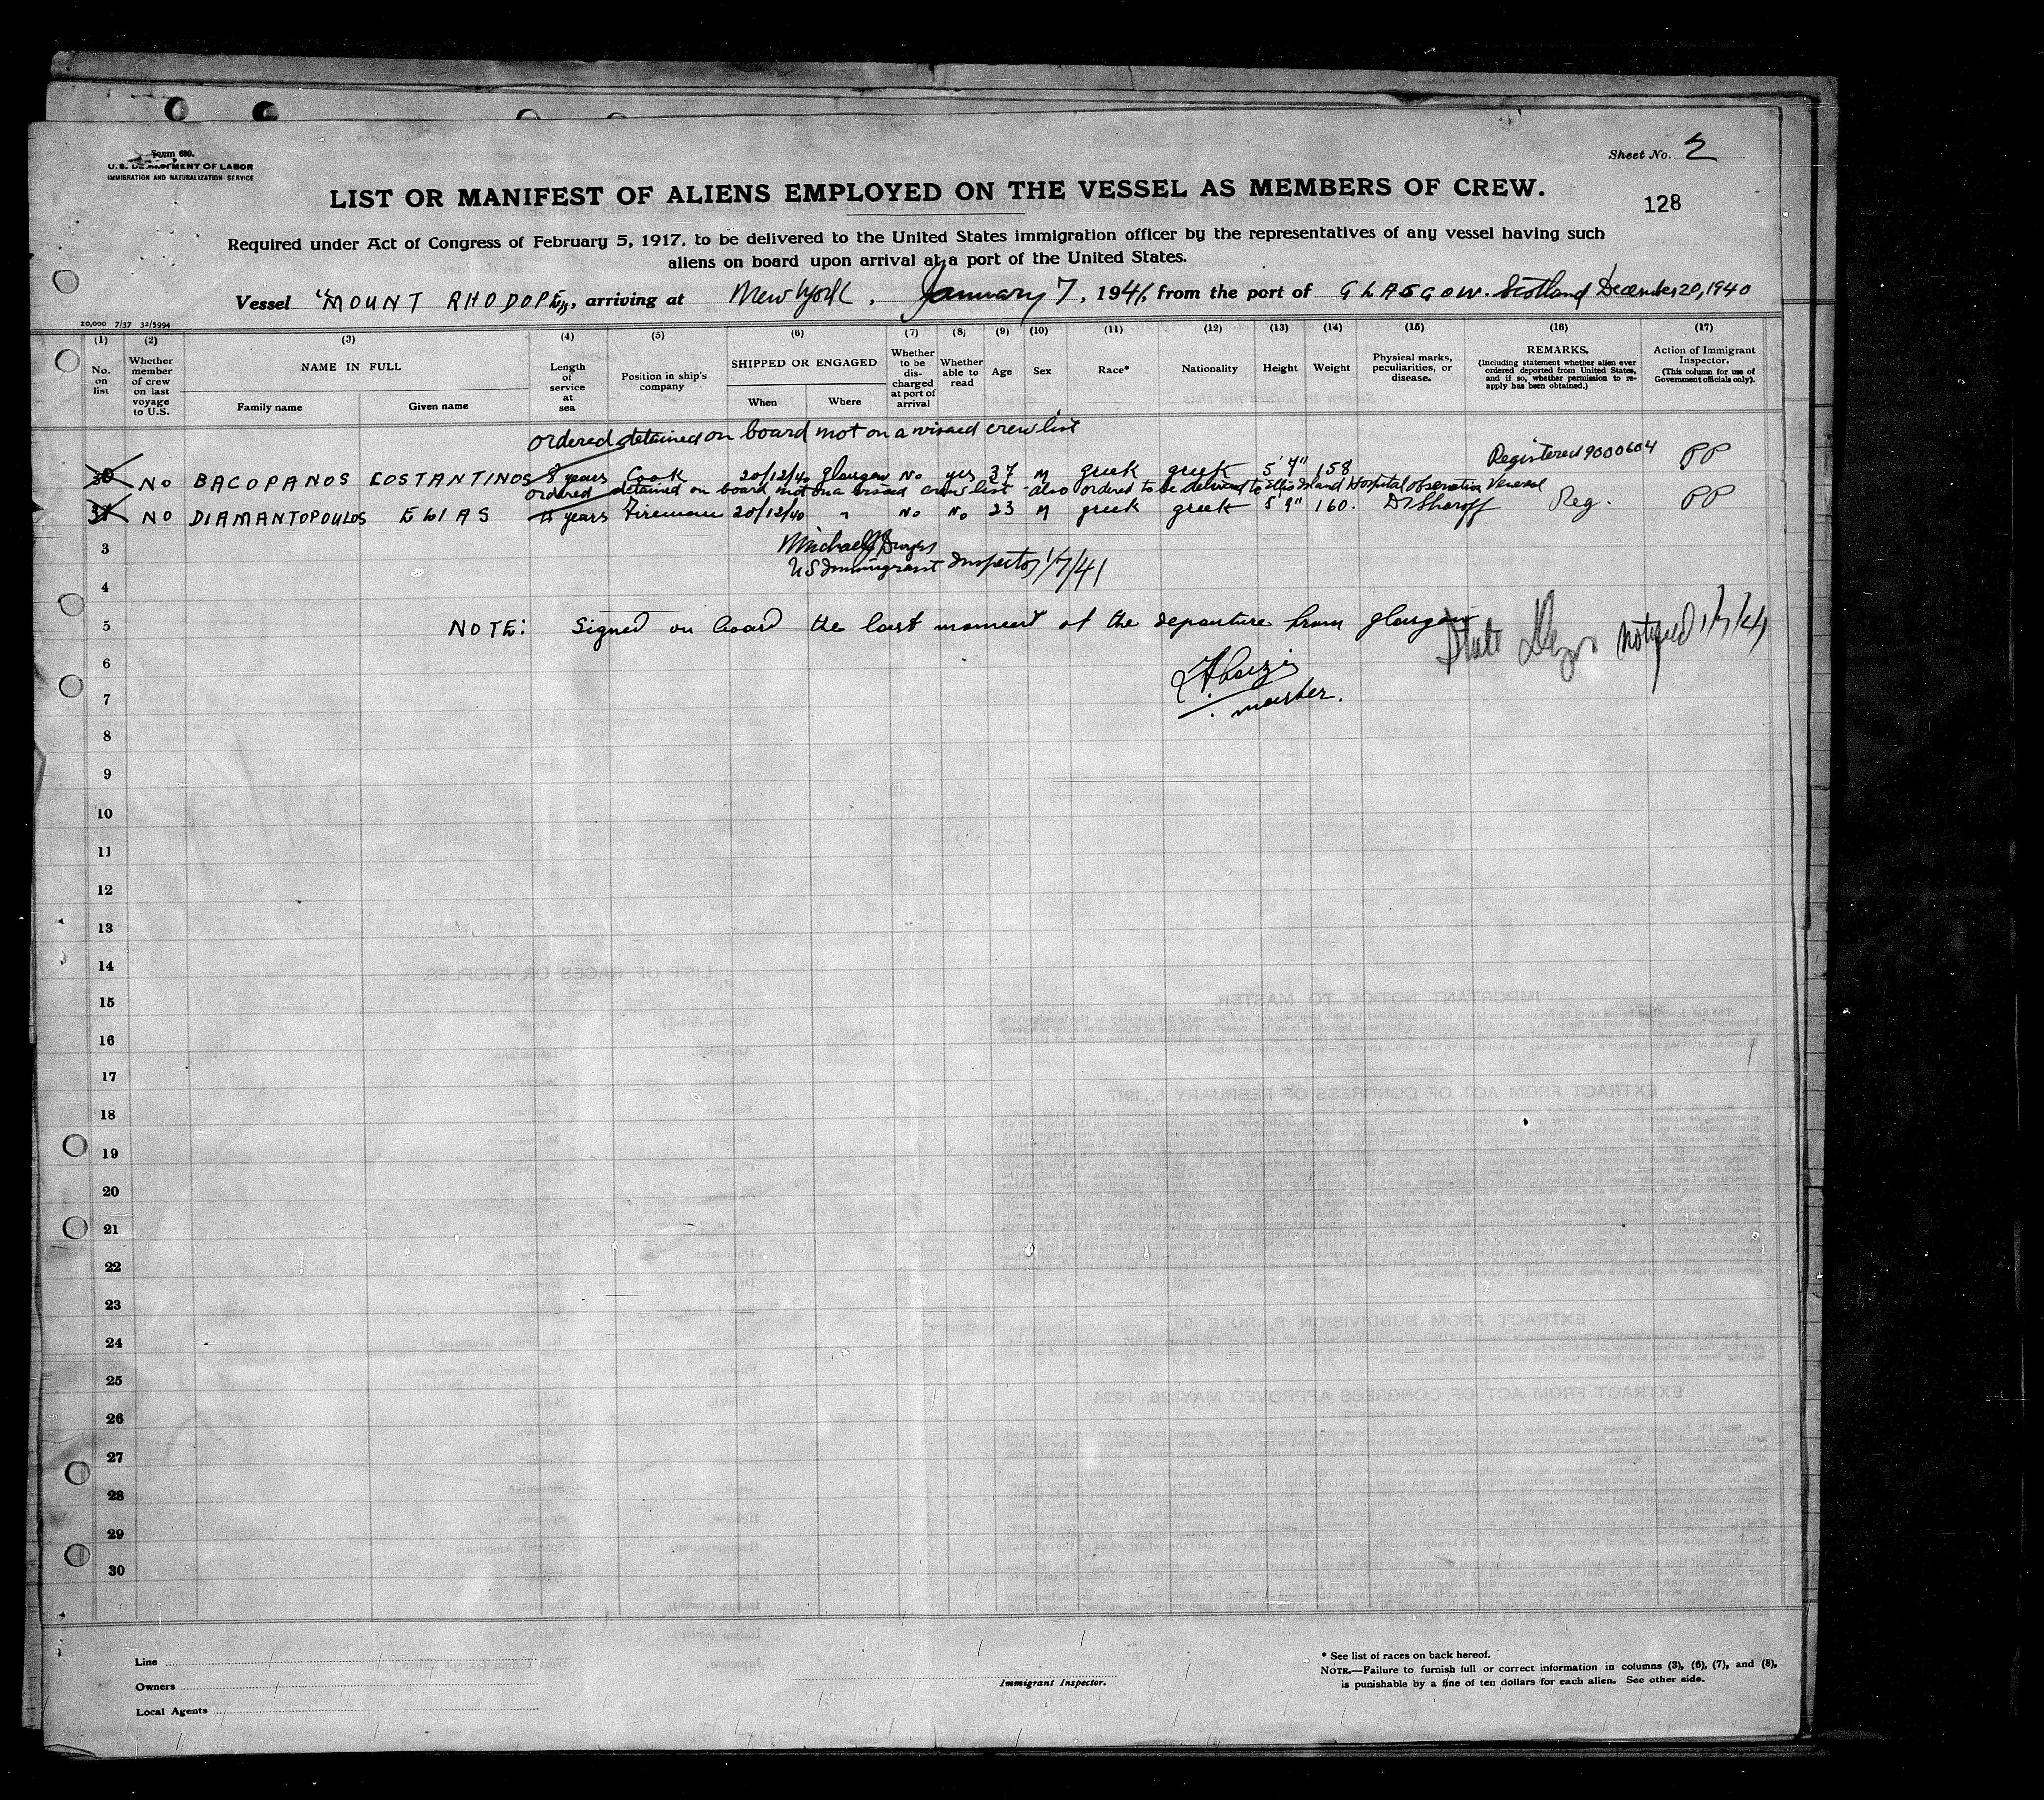 Form 680.
U.S. DEPARTMENT OF LABOR
IMMIGRATION AND NATURALIZATION SERVICE
Sheet No. 2
LIST OR MANIFEST OF ALIENS EMPLOYED ON THE VESSEL AS MEMBERS OF CREW.
128
Required under Act of Congress of February 5, 1917, to be delivered to the United States immigration officer by the representatives of any vessel having such
aliens on board upon arrival at a port of the United States.
Vessel "MOUNT RHODOPE", arriving at New York, January 7, 1941, from the port of GLASGOW. Scotland December 20, 1940
10,000 7/37 32/5994
(1) (2) (3) (4) (5) (6) (7) (8) (9) (10) (11) (12) (13) (14) (15) (16) (17)
No. on list
Whether member of crew on last voyage to U.S.
NAME IN FULL
Family name
Given name
Length of service at sea
Position in ship's company
SHIPPED OR ENGAGED
When
Where
Whether to be discharged at port of arrival
Whether able to read
Age
Sex
Race*
Nationality
Height
Weight
Physical marks, peculiarities, or disease.
REMARKS.
(Including statement whether alien ever ordered deported from United States, and if so, whether permission to reapply has been obtained.)
Action of Immigrant Inspector.
(This column for use of Government officials only).
ordered detained on board not on a visaed crew list
30 No BACOPANOS COSTANTINOS 8 years Cook 20/12/40 glasgow No yes 37 M greek greek 5' 7" 158 Registered 9000604 PP
ordered detained on board not on a visaed crew list also ordered to be delivered to Ellis Island Hospital observation Venereal
31 NO DIAMANTOPOULOS ELIAS years Fireman 20/12/40 " No No 23 M greek greek 5 9" 160. Reg. PP
3
Michael
US Immigrant Inspector 1/7/41
4
5 NOTE: Signed on board the last moment of the departure from glasgow
State notified 1/7/41
6
7 master.
8
9
10
11
12
13
14
15
16
17
18
19
20
21
22
23
24
25
26
27
28
29
30
Line
Owners
Local Agents
Immigrant Inspector.
* See list of races on back hereof.
NOTE.—Failure to furnish full or correct information in columns (3), (6), (7), and (8),
is punishable by a fine of ten dollars for each alien. See other side.